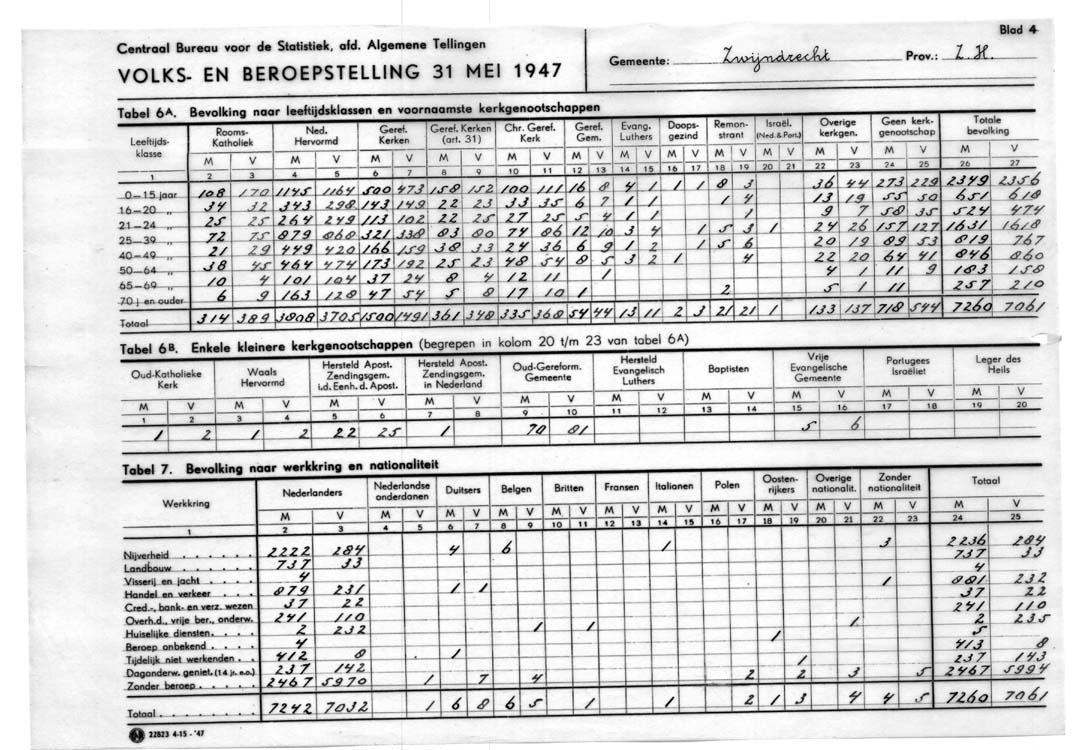 Blad 4
Centraal Bureau voor de Statistiek, afd. Algemene Tellingen
VOLKS- EN BEROEPSTELLING 31 MEI 1947
Gemeente: Zwijndrecht Prov.: Z.H.
Tabel 6A. Bevolking naar leeftijdsklassen en voornaamste kerkgenootschappen
Leeftijds-klasse Rooms-Katholiek Ned. Hervormd Geref. Kerken Geref. Kerken (art. 31) Chr. Geref. Kerk Geref. Gem. Evang. Luthers Doops-gezind Remon-strant Israël. (Ned. & Port.) Overige kerkgen. Geen kerk-genootschap Totale bevolking
M V M V M V M V M V M V M V M V M V M V M V M V M V
1 2 3 4 5 6 7 8 9 10 11 12 13 14 15 16 17 18 19 20 21 22 23 24 25 26 27
0—15 jaar 108 170 1145 1164 500 473 158 152 100 111 16 8 4 1 1 1 8 3 36 44 273 229 2349 2356
16—20 „ 34 32 343 298 143 149 22 23 33 35 6 7 1 1 1 4 13 19 55 50 651 618
21—24 „ 25 25 264 249 113 102 22 25 27 25 5 4 1 1 1 9 7 58 35 524 474
25—39 „ 72 75 879 868 321 338 83 80 74 86 12 10 3 4 1 5 3 1 24 26 157 127 1631 1618
40—49 „ 21 29 449 420 166 159 38 33 24 36 6 9 1 2 1 5 6 20 19 89 53 819 767
50—64 „ 38 45 464 474 173 192 25 23 48 54 8 5 3 2 1 4 22 20 64 41 846 860
65—69 „ 10 4 101 104 37 24 8 4 12 11 1 4 1 11 9 183 158
70 j en ouder 6 9 163 128 47 54 5 8 17 10 1 2 5 1 11 257 210
Totaal 314 389 3808 3705 1500 1491 361 348 335 368 54 44 13 11 2 3 21 21 1 133 137 718 544 7260 7061
Tabel 6B. Enkele kleinere kerkgenootschappen (begrepen in kolom 20 t/m 23 van tabel 6A)
Oud-Katholieke Kerk Waals Hervormd Hersteld Apost. Zendingsgem. i.d. Eenh. d. Apost. Hersteld Apost. Zendingsgem. in Nederland Oud-Gereform. Gemeente Hersteld Evangelisch Luthers Baptisten Vrije Evangelische Gemeente Portugees Israëliet Leger des Heils
M V M V M V M V M V M V M V M V M V M V
1 2 3 4 5 6 7 8 9 10 11 12 13 14 15 16 17 18 19 20
1 2 1 2 22 25 1 70 81 5 6
Tabel 7. Bevolking naar werkkring en nationaliteit
Werkkring Nederlanders Nederlandse onderdanen Duitsers Belgen Britten Fransen Italianen Polen Oosten-rijkers Overige nationalit. Zonder nationaliteit Totaal
M V M V M V M V M V M V M V M V M V M V M V M V
1 2 3 4 5 6 7 8 9 10 11 12 13 14 15 16 17 18 19 20 21 22 23 24 25
Nijverheid 2222 284 4 6 1 3 2236 284
Landbouw 737 33 737 33
Visserij en jacht 4 4
Handel en verkeer 879 231 1 1 1 881 232
Cred.-, bank- en verz. wezen 37 22 37 22
Overh.d., vrije ber., onderw. 241 110 241 110
Huiselijke diensten 2 232 1 1 1 2 235
Beroep onbekend 4 1 5
Tijdelijk niet werkenden 412 8 1 413 8
Dagonderw. geniet. (14 jr. e.o.) 237 142 1 237 143
Zonder beroep 2467 5970 1 7 4 2 2 3 5 2467 5994
Totaal 7242 7032 1 6 8 6 5 1 1 2 1 3 4 4 5 7260 7061
22823 4-15 - '47